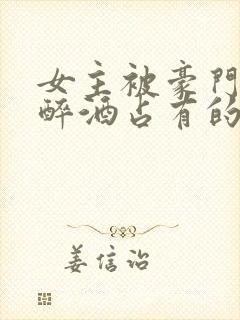 女主被豪门
醉酒占有的
姜信诒